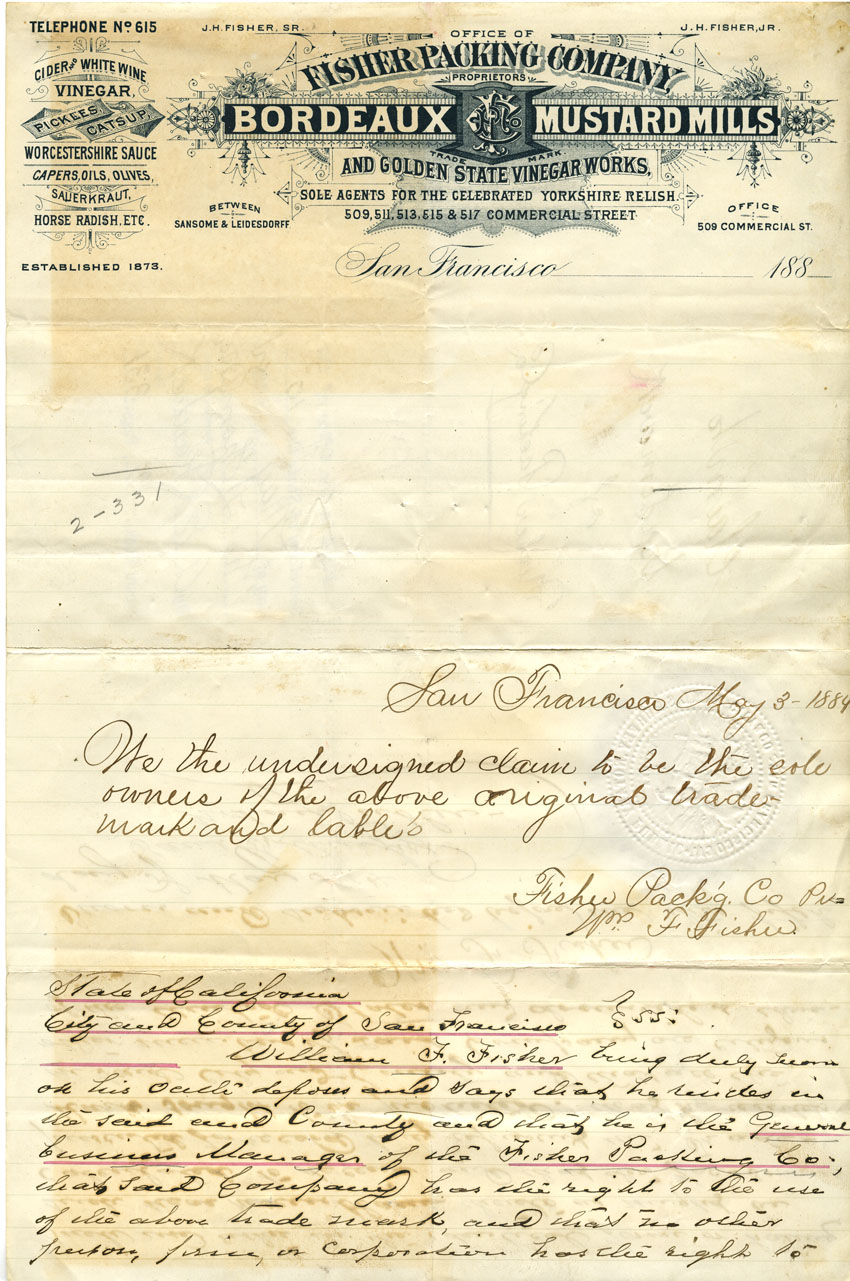 TELEPHONE Nº 615
CIDER AND WHITE WINE
VINEGAR,
PICKLES,
CATSUP,
WORCESTERSHIRE SAUCE
CAPERS, OILS, OLIVES,
SAUERKRAUT,
HORSE RADISH, ETC.
ESTABLISHED 1873.
J.H. FISHER, SR.
OFFICE OF
J.H. FISHER, JR.
FISHER PACKING COMPANY,
PROPRIETORS
BORDEAUX MUSTARD MILLS
TRADE MARK
AND GOLDEN STATE VINEGAR WORKS,
SOLE AGENTS FOR THE CELEBRATED YORKSHIRE RELISH.
509, 511, 513, 515 & 517 COMMERCIAL STREET
BETWEEN
SANSOME & LEIDESDORFF
OFFICE
509 COMMERCIAL ST.
San Francisco 188
2-331
San Francisco May 3-1884
We the undersigned claim to be the sole
owners of the above original trade-
mark and lable's
Fisher Pack'g. Co Per
Wm F Fisher.
State of California
City and County of San Francisco } SS:
William F. Fisher being duly sworn
on his oath deposes and says that he resides in
the said and County and that he is the General
business Manager of the Fisher Packing Co.,
that said Company has the right to the use
of the above trade mark, and that no other
person, firm, or corporation has the right to